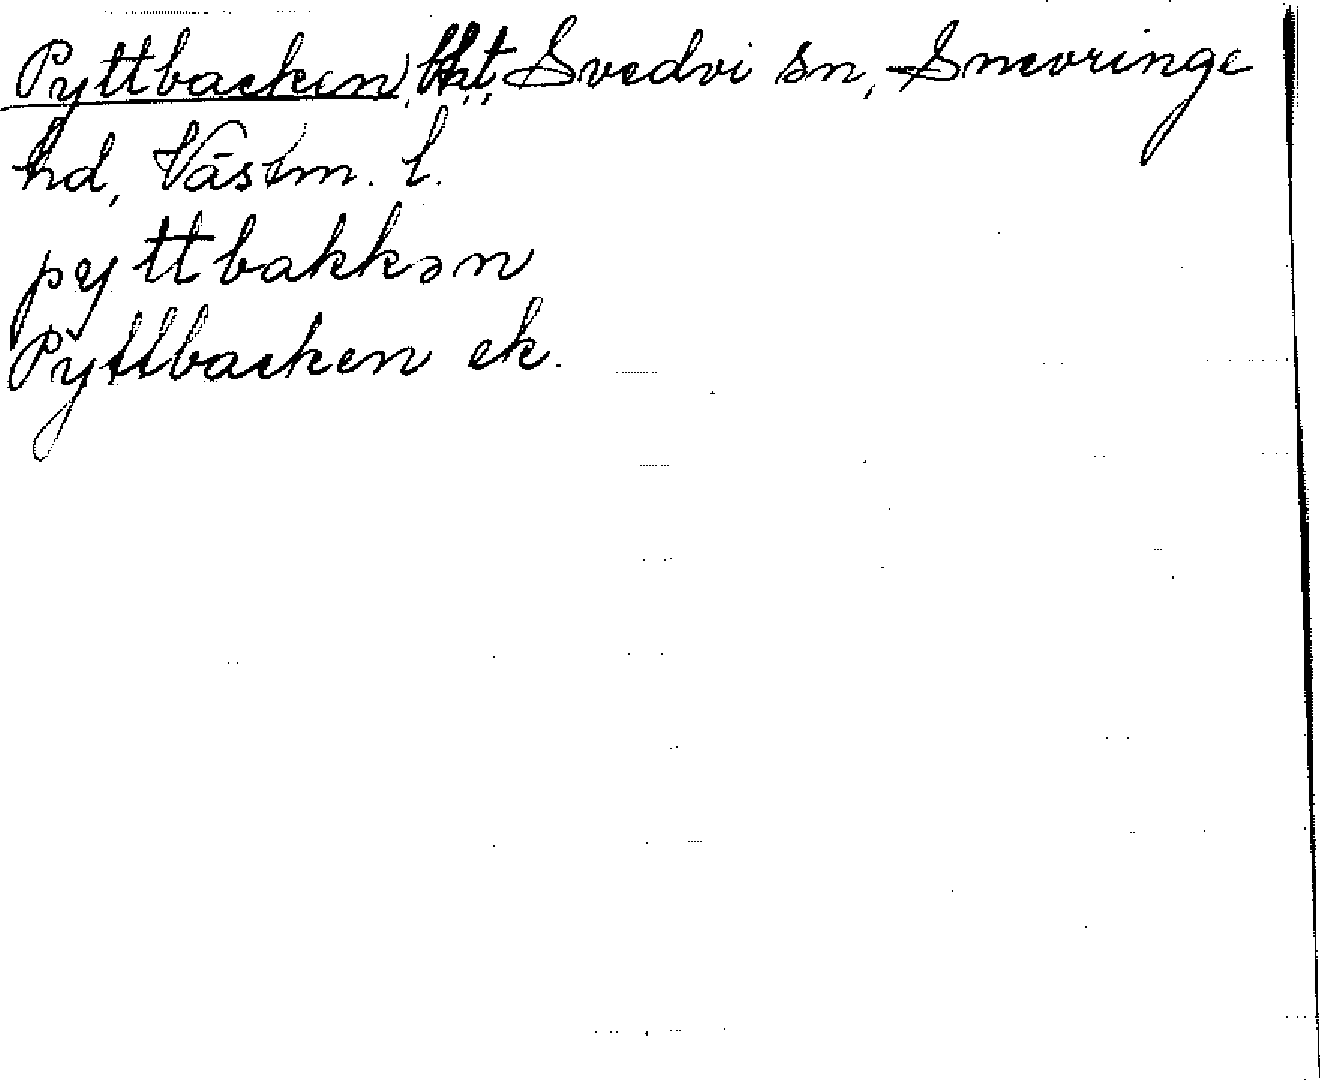 Pyttbacken, Svedvi sn, Snevringe
hd, Västm. l.
pyttbakkən
Pyttbacken ek.